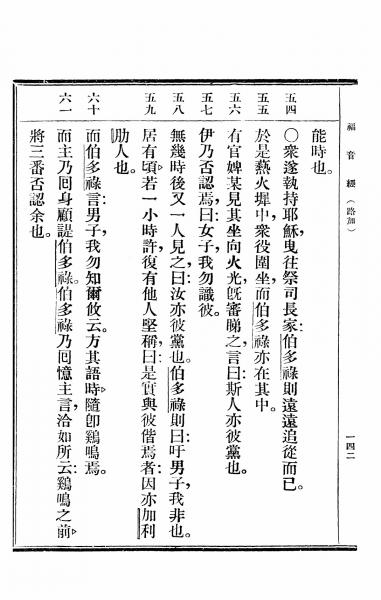 福音經（路加）
一四二
能時也。
五四
〇衆遂執持耶穌，曳往祭司長家：伯多祿則遠遠追從而已。
五五
於是爇火墀中，衆役圍坐，而伯多祿亦在其中。
五六
有官婢某見其坐向火光，旣審睇之，言曰：斯人亦彼黨也。
五七
伊乃否認焉，曰：女子，我勿識彼。
五八
無幾時後又一人見之，曰：汝亦彼黨也。伯多祿則曰：吁男子，我非也。
五九
居有頃，若一小時許，復有他人堅稱，曰：是實與彼偕焉者：因亦加利
肋人也。
六十
而伯多祿言：男子，我勿知爾攸云。方其語時，隨卽鷄鳴焉。
六一
而主乃囘身顧諟伯多祿。伯多祿乃囘憶主言，洽如所云：鷄鳴之前，
將三番否認余也。